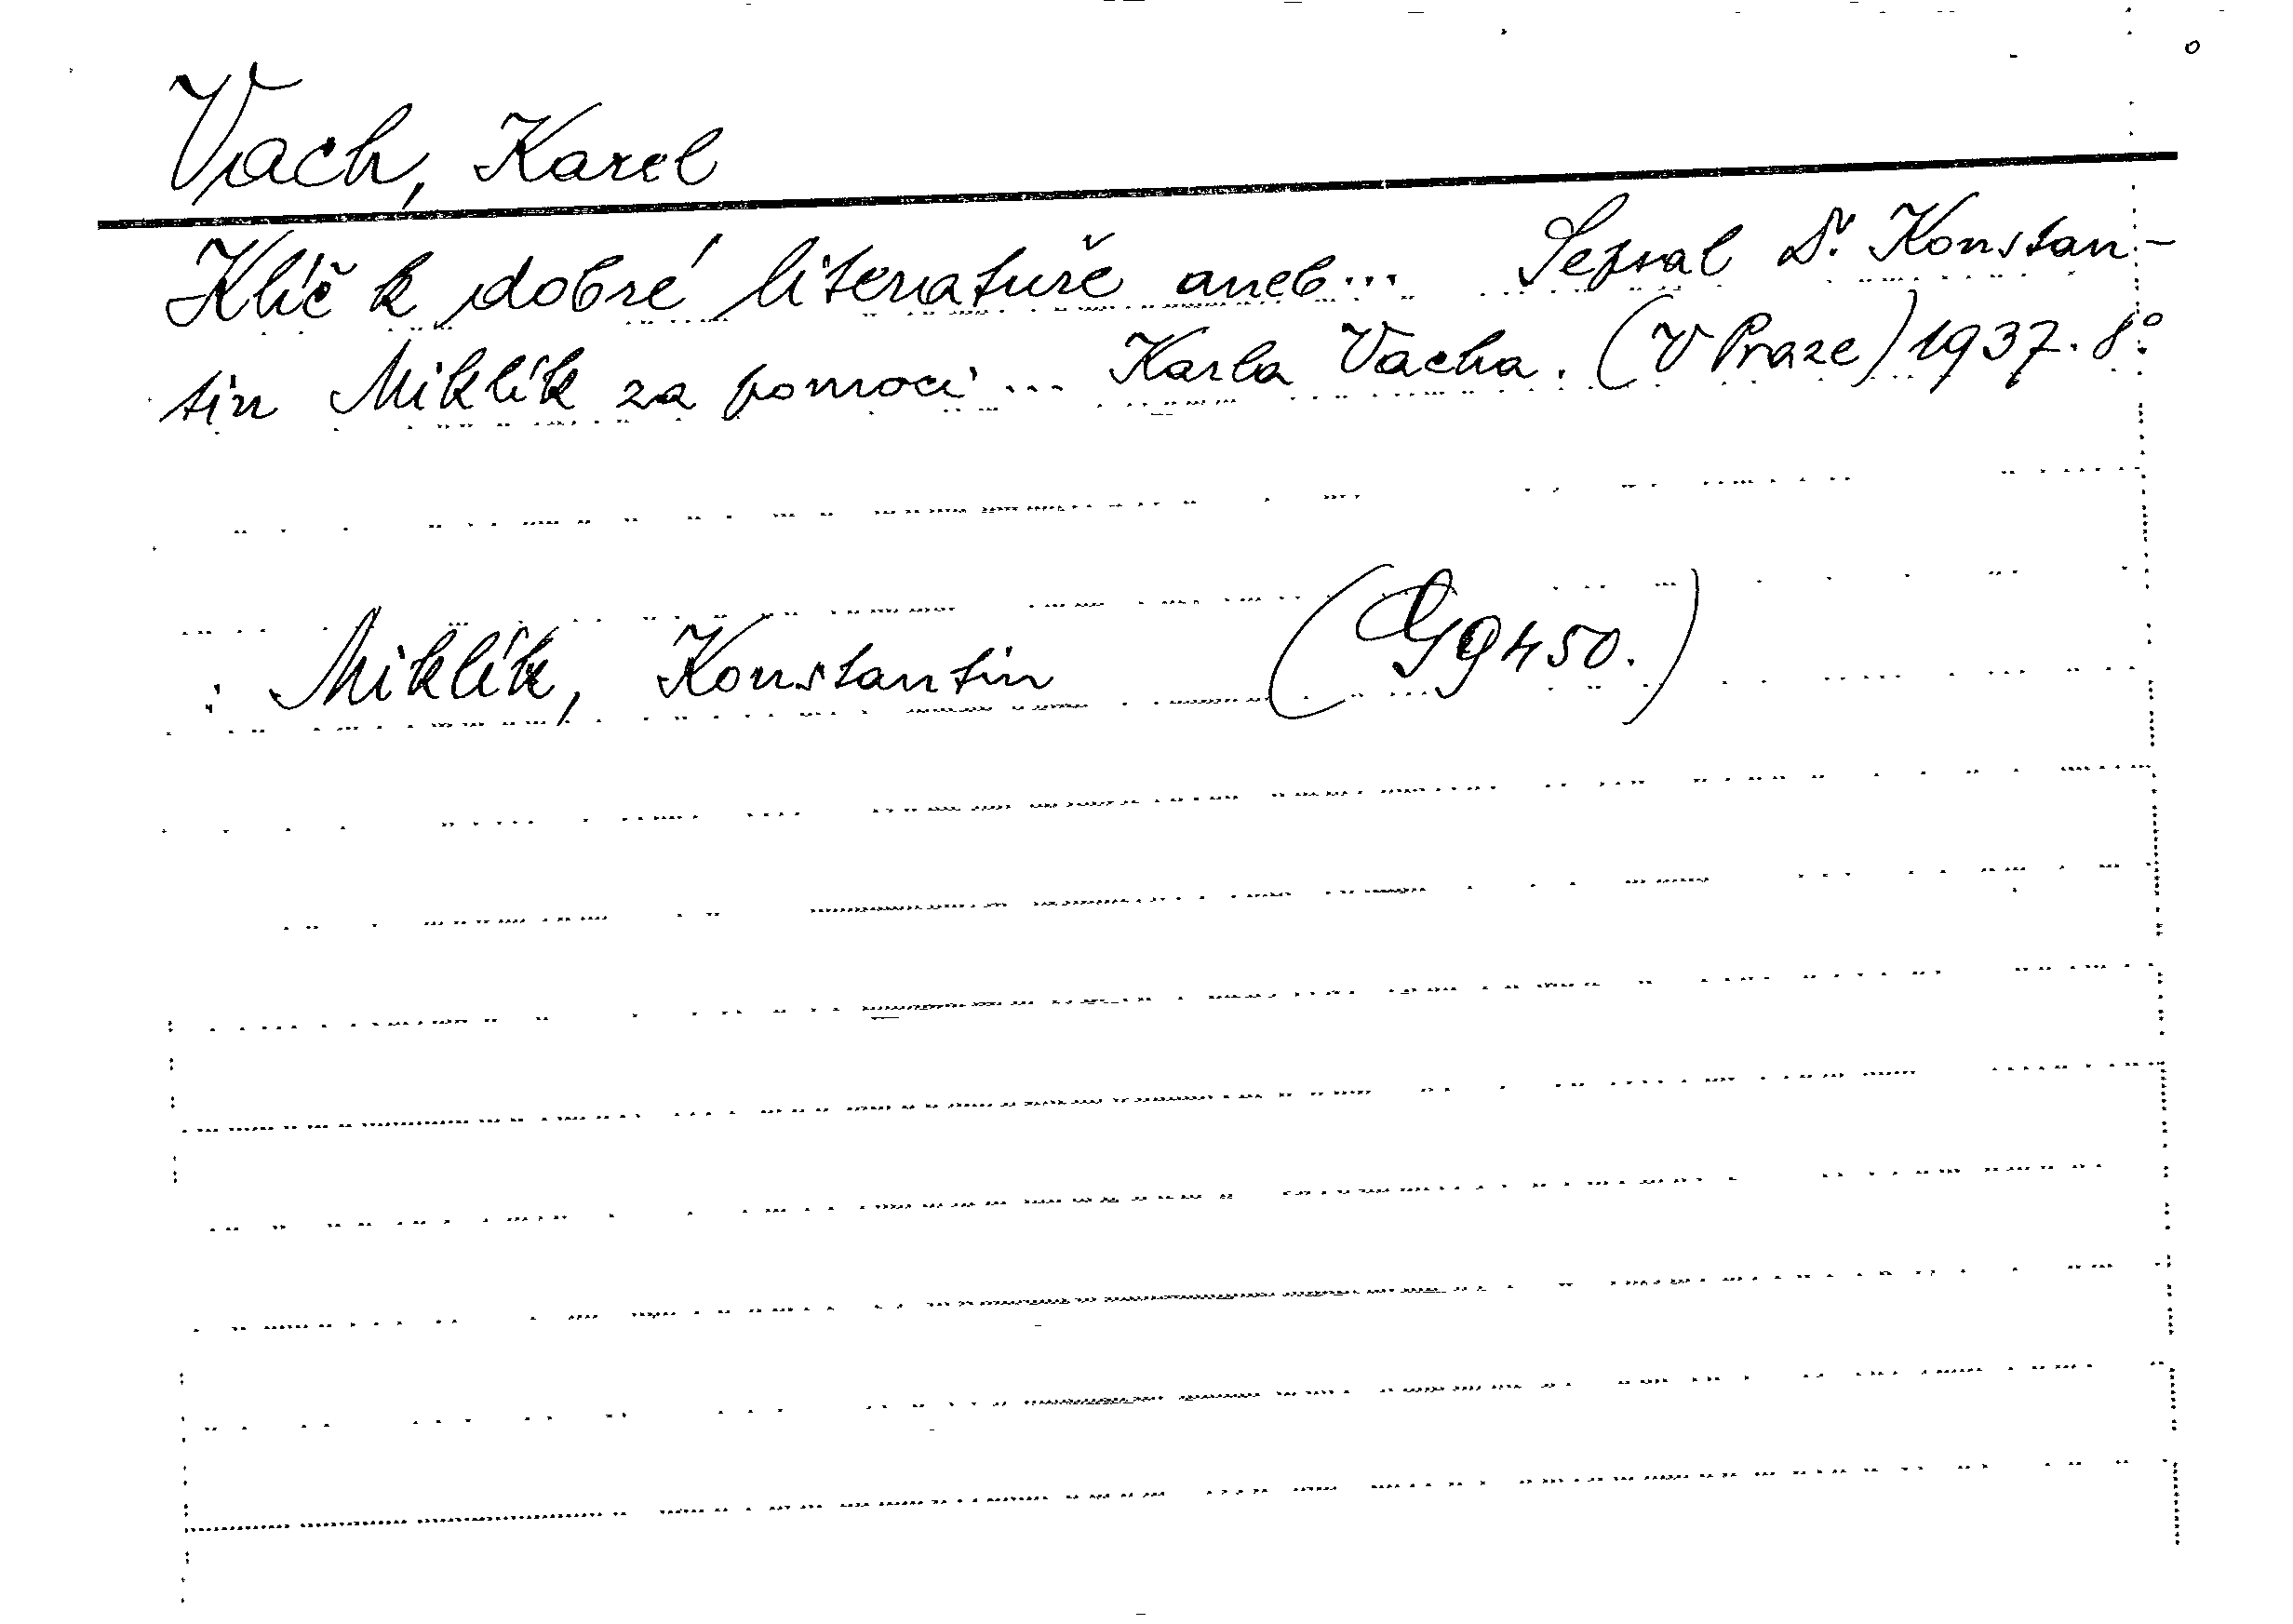 Vach, Karel
Klíč k dobré literatuře aneb... Sepsal Dr. Konstan-
tin Miklík za pomoci ... Karla Vacha. (V Praze) 1937. 8°
: Miklík, Konstantin (G 9450.)